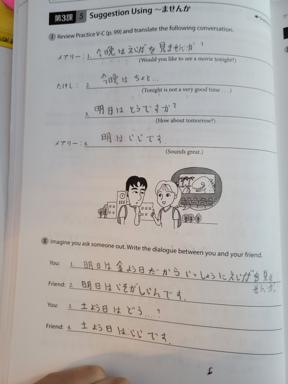 第3課 5 Suggestion Using ～ませんか
Ⅰ Review Practice V-C (p. 99) and translate the following conversation.
メアリー： 1. 今晩はえいがを見ませんか？
(Would you like to see a movie tonight?)
たけし： 2. 今晩はちょと…
(Tonight is not a very good time . . .)
3. 明日はどうですか？
(How about tomorrow?)
メアリー： 4. 明はいいです
(Sounds great.)
Ⅱ Imagine you ask someone out. Write the dialogue between you and your friend.
You: 1. 明日は金よう日だからいっしょうにえいがを見
せんか。
Friend: 2. 明日はいそがしいんです。
You: 3. 土よう日はどう…？
Friend: 4. 土よう日はいいです。